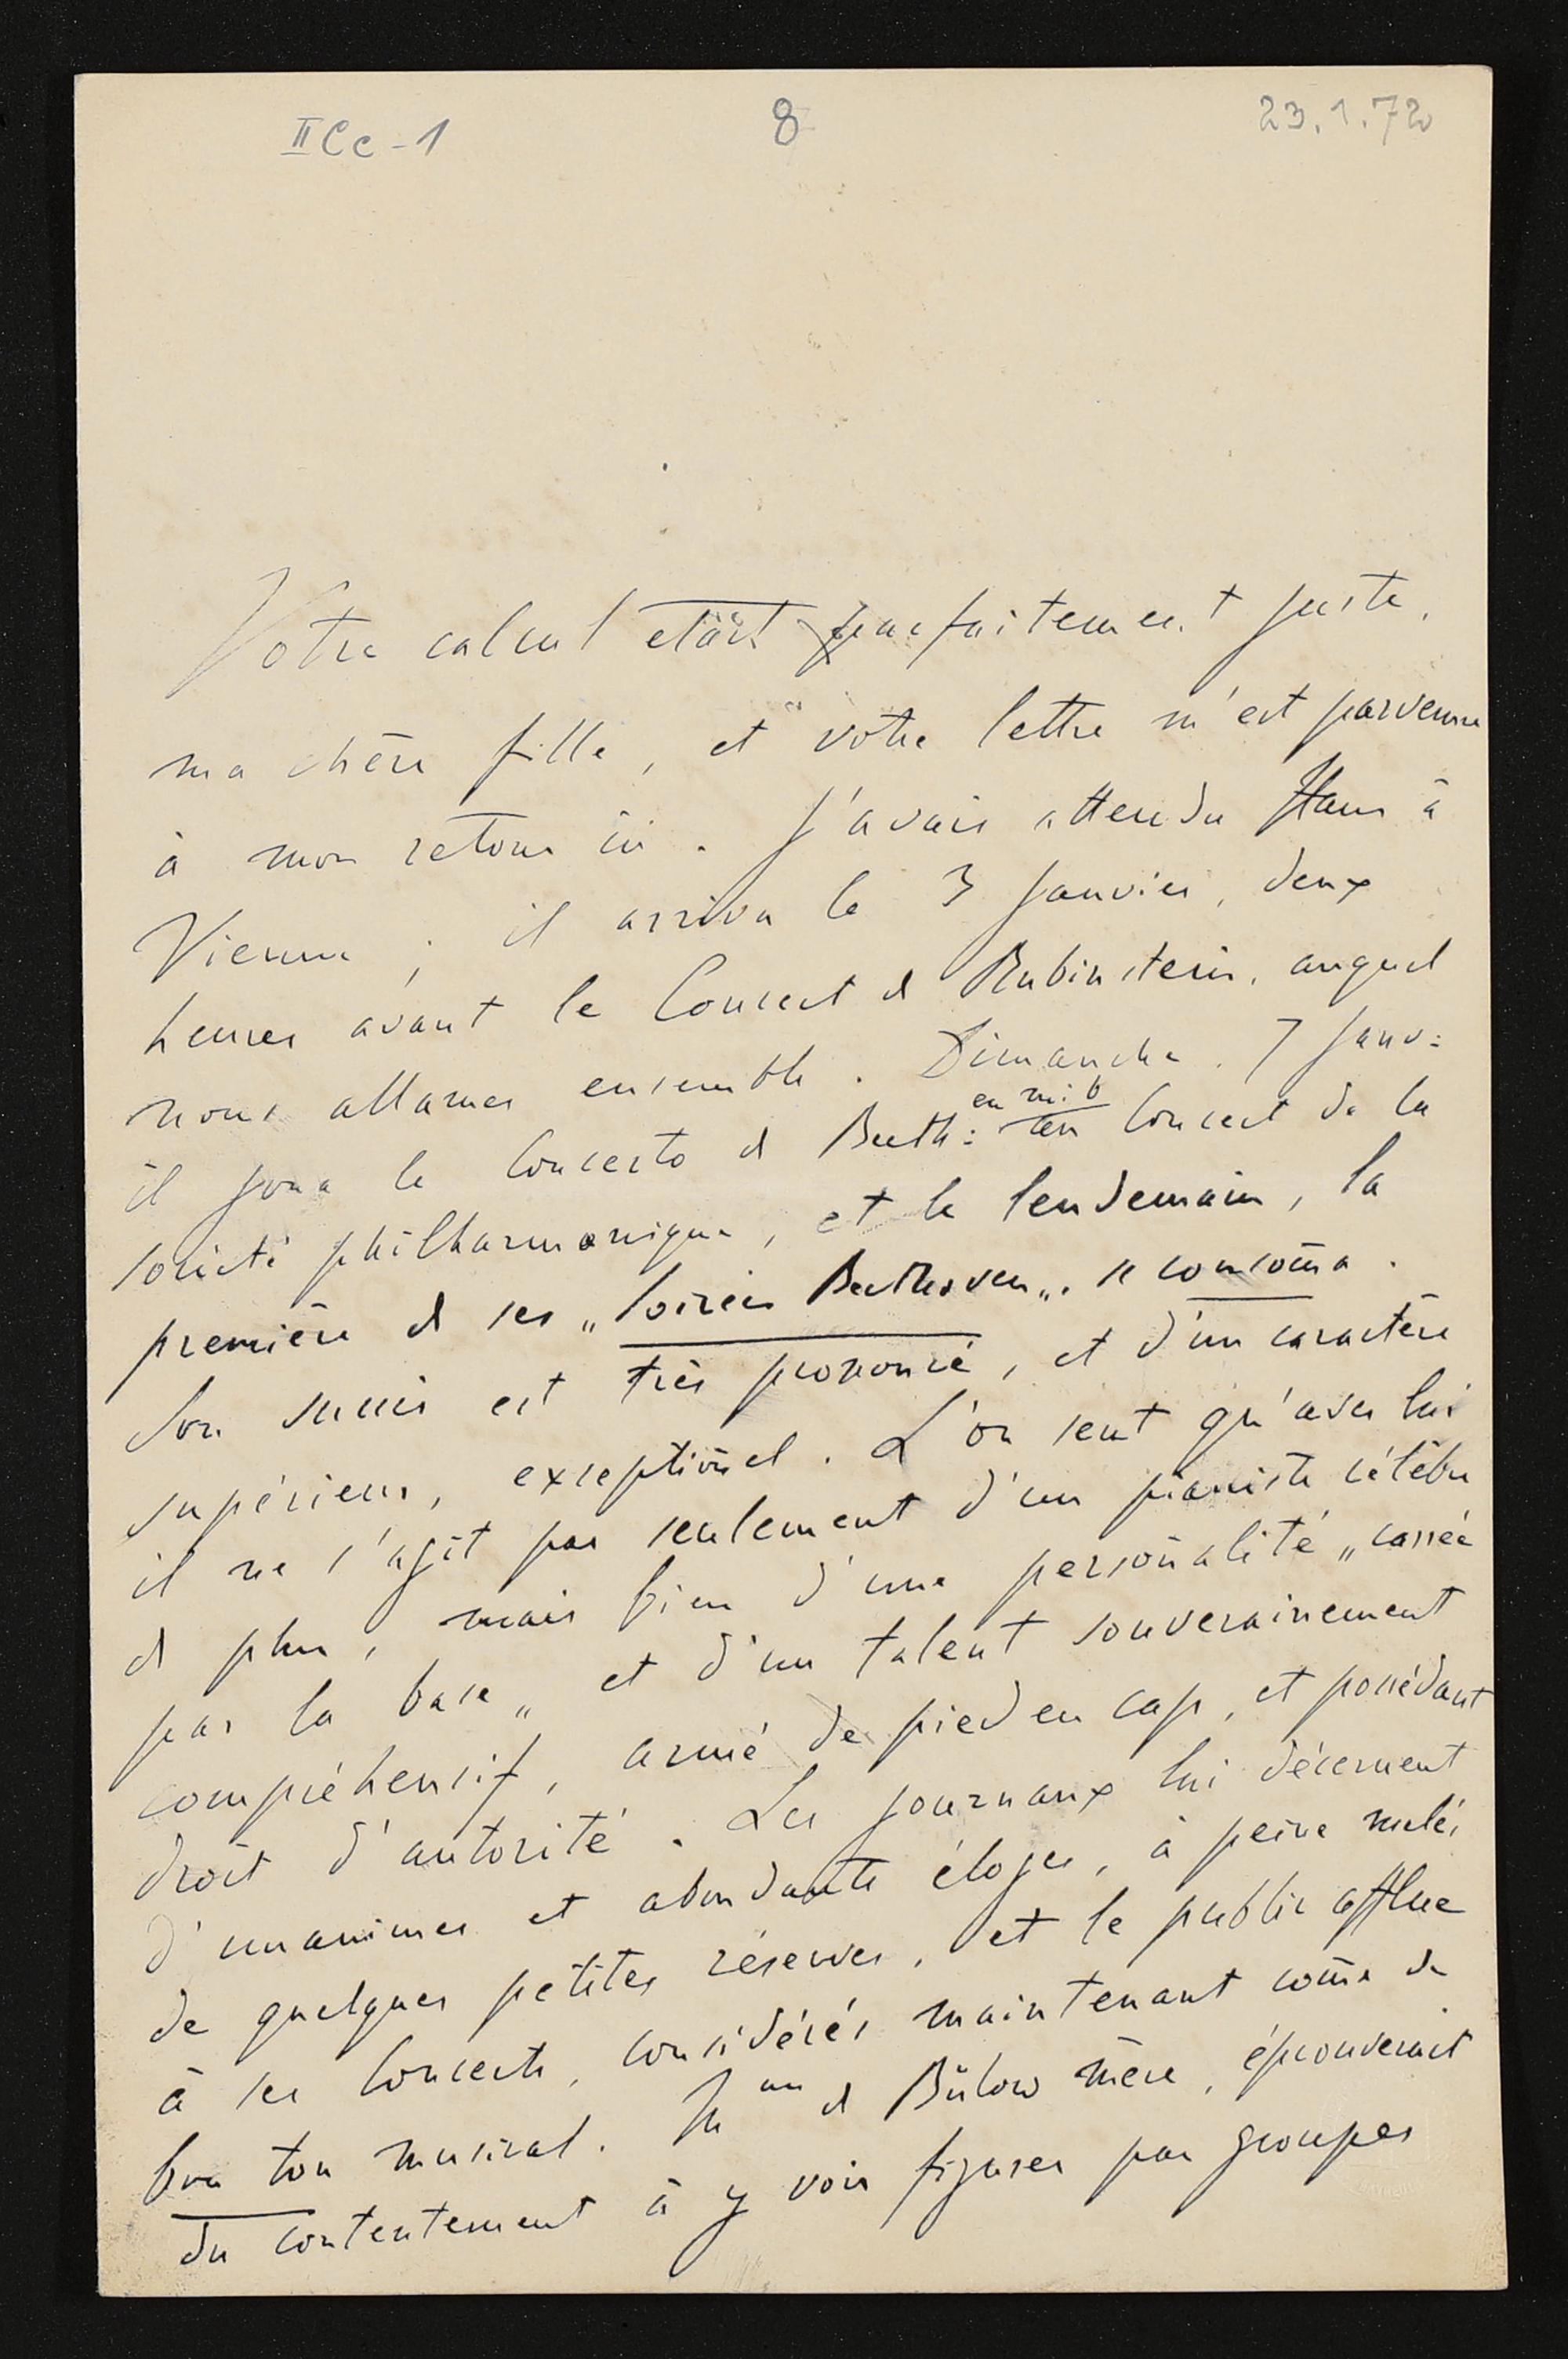 II Cc - 1
8
23.1.72
Votre calcul était parfaitement juste,
ma chère fille, et votre lettre m'est parvenue
à mon retour ici. J'avais attendu Hans à
Vienne; il arriva le 3 Janvier, deux
heures avant le Concert d Rubinstein, auquel
nous allames ensemble. Dimanche. 7 Janv:
en mi b
il joua le Concerto d Beeth: au Concert de la
société philharmonique, et le lendemain, la
première d ses „Soirées Beethoven„. se consom̄a.
Son succès est très prononcé, et d'un caractère
supérieur, exceptioñel. L'on sent qu'avec lui
il ne s'agit pas seulement d'un pianiste célèbre
d plus, mais bien d'une persoñalité „carrée
par la base„ et d'un talent souverainement
compréhensif, armé de pied en cap, et possédant
droit d'autorité. Les journaux lui décernent
d'unanimes et abondants éloges, à peine mêlés
de quelques petites réserves, et le public afflue
à ses Concerts, considérés maintenant com̄e de
bon ton musical. Mme d Bülow mère, éprouverait
du contentement à y voir figurer par groupes